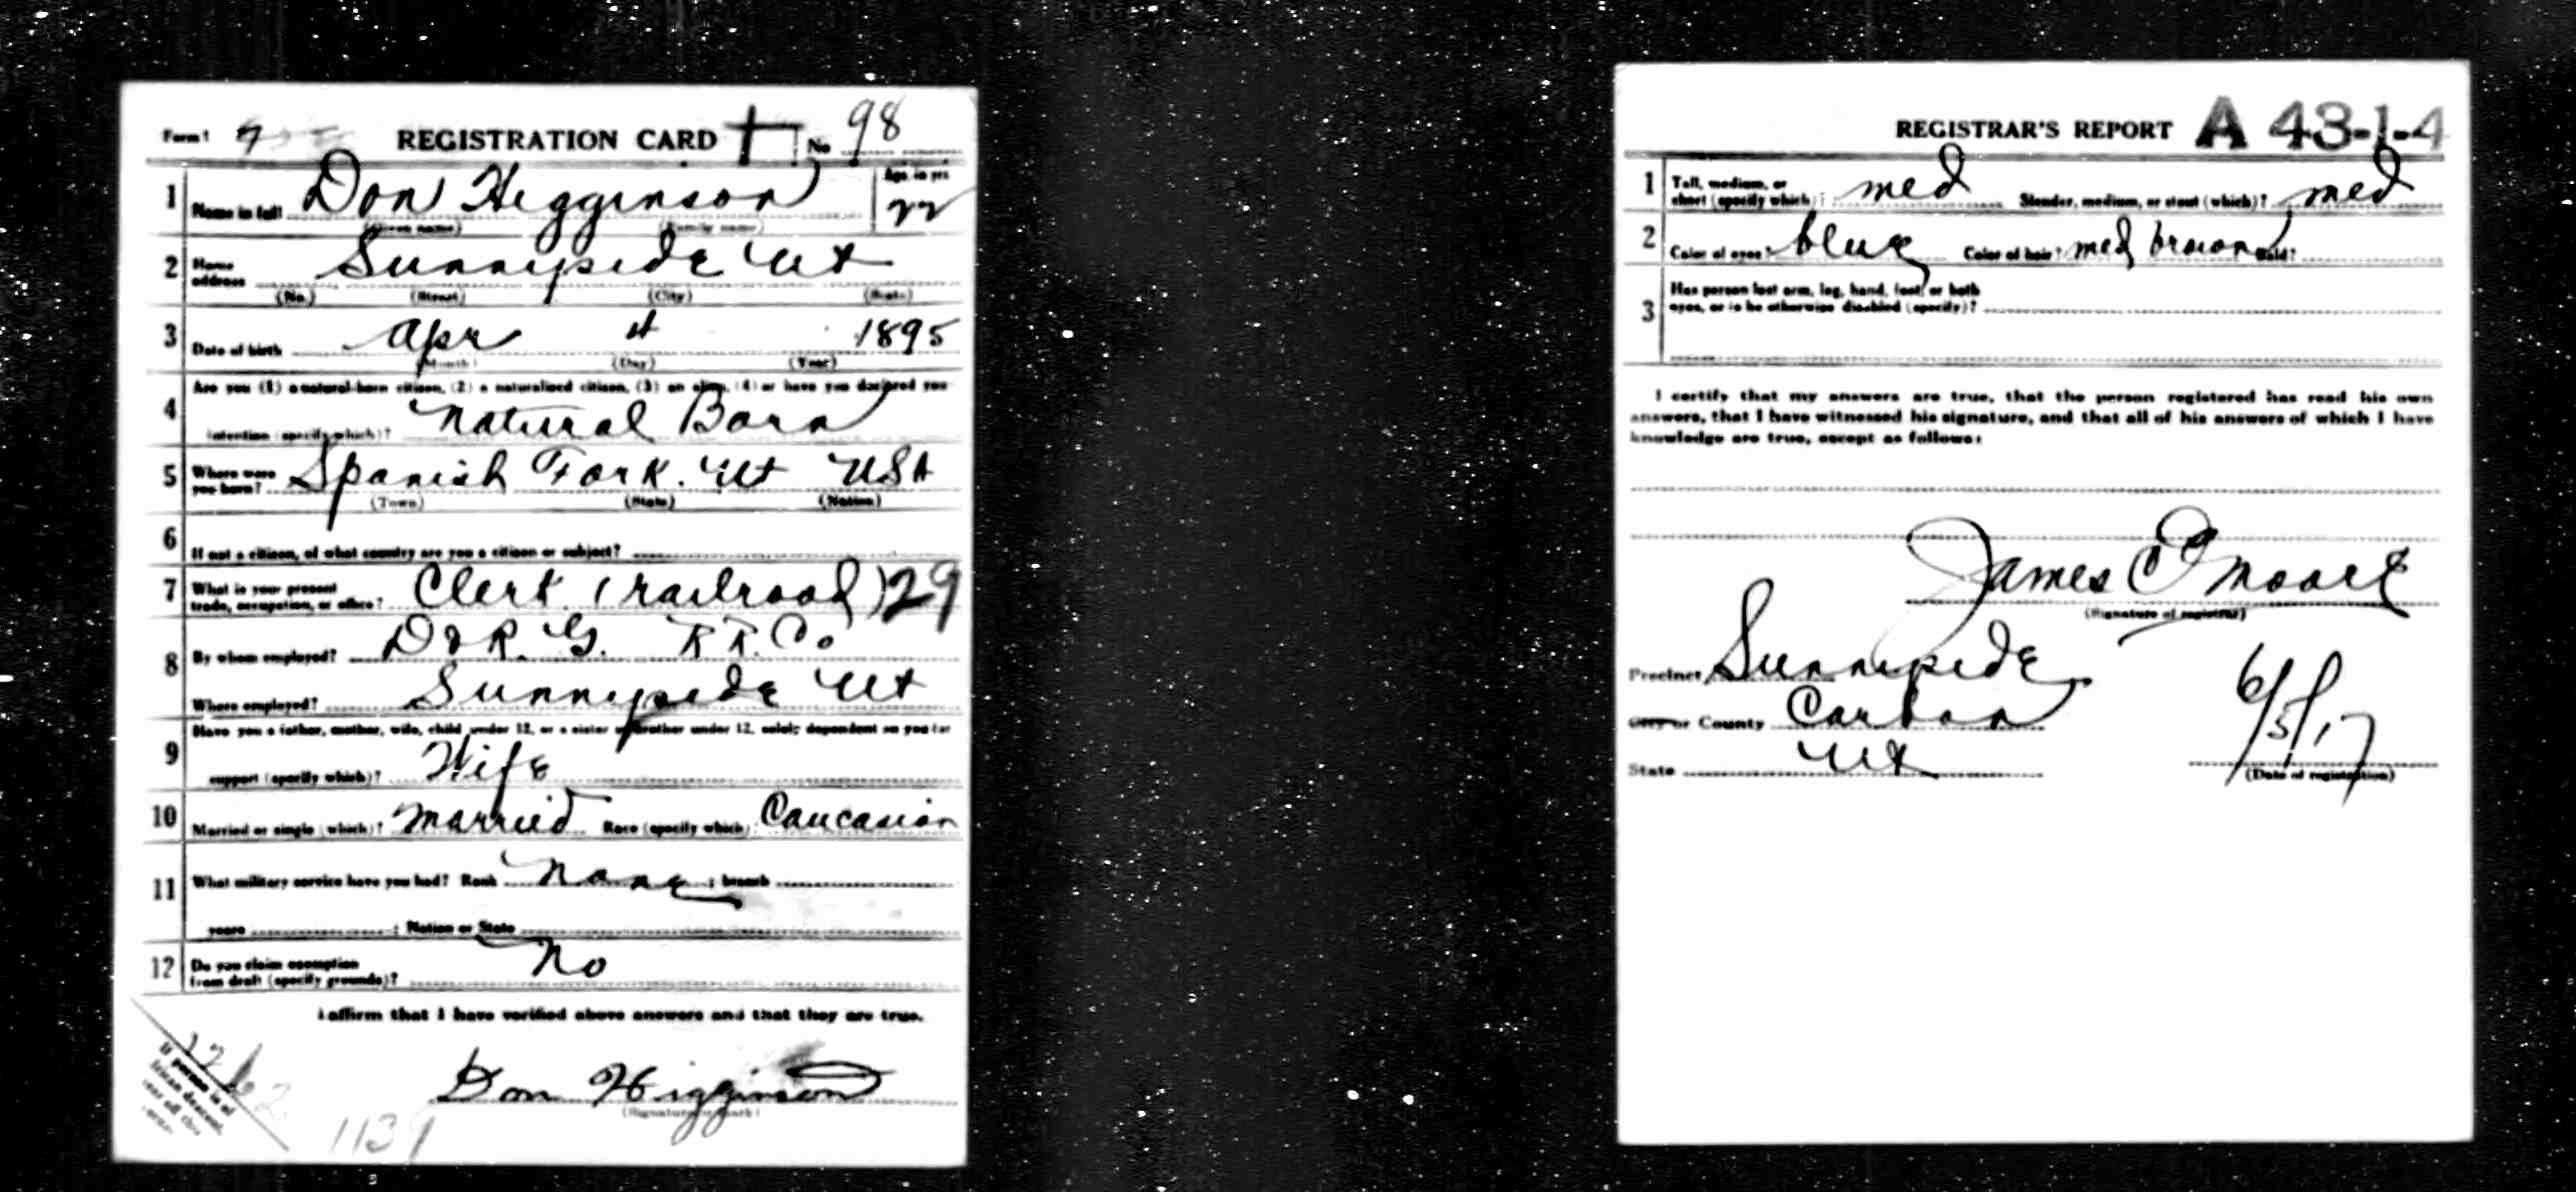 Form 1 7 REGISTRATION CARD No 98
1 Name in full Don Higginson Age in yrs 22
(Given name) (Family name)
2 Home address Sunnyside Ut
(No.) (Street) (City) (State)
3 Date of birth Apr 1895
(Month) (Day) (Year)
Are you (1) a natural-born citizen, (2) a naturalized citizen, (3) an alien, (4) or have you declared your
4 intention (specify which)? Natural Born
5 Where were you born? Spanish Fork. Ut USA
(Town) (State) (Nation)
6 If not a citizen, of what country are you a citizen or subject?
7 What is your present trade, occupation, or office? Clerk (railroad) 29
8 By whom employed? D & R. G. R R. Co
Where employed? Sunnyside Ut
Have you a father, mother, wife, child under 12, or a sister or brother under 12, solely dependent on you for
9 support (specify which)? Wife
10 Married or single (which)? Married Race (specify which) Caucasian
11 What military service have you had? Rank None ; branch
years ; Nation or State
12 Do you claim exemption from draft (specify grounds)? No
I affirm that I have verified above answers and that they are true.
Don Higginson
(Signature or mark)
If person is of
African descent,
tear off this
corner.
1139
REGISTRAR'S REPORT A 43-1-4
1 Tall, medium, or short (specify which)? med Slender, medium, or stout (which)? med
2 Color of eyes? blue Color of hair? med brown Bald?
3 Has person lost arm, leg, hand, foot, or both
eyes, or is he otherwise disabled (specify)?
I certify that my answers are true, that the person registered has read his own
answers, that I have witnessed his signature, and that all of his answers of which I have
knowledge are true, except as follows:
James E Moore
(Signature of registrar)
Precinct Sunnyside
City or County Carbon
State Ut
6/5/17
(Date of registration)